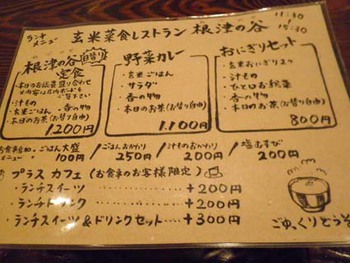 ランチメニュー
玄米菜食レストラン 根津の谷
11:30
根津の谷定食
・汁もの
・玄米ごはん ・香の物
・本日のお茶(お替り自由)
1.200円
野菜カレー
・玄米ごはん
・サラダ
・香の物
・本日のお茶(お替り自由)
1.100円
おにぎりセット
・玄米おにぎり2ヶ
・汁もの
・ひとくちお総菜
・本日のお茶(お替り自由)
800円
ごはん大盛 100円
ごはんおかわり 250円
汁ものおかわり 200円
塩むすび 200円
プラス カフェ (お食事のお客様限定)
・ランチスイーツ +200円
・ランチドリンク +200円
・ランチスイーツ&ドリンクセット +300円
ごゆっくりどうぞ